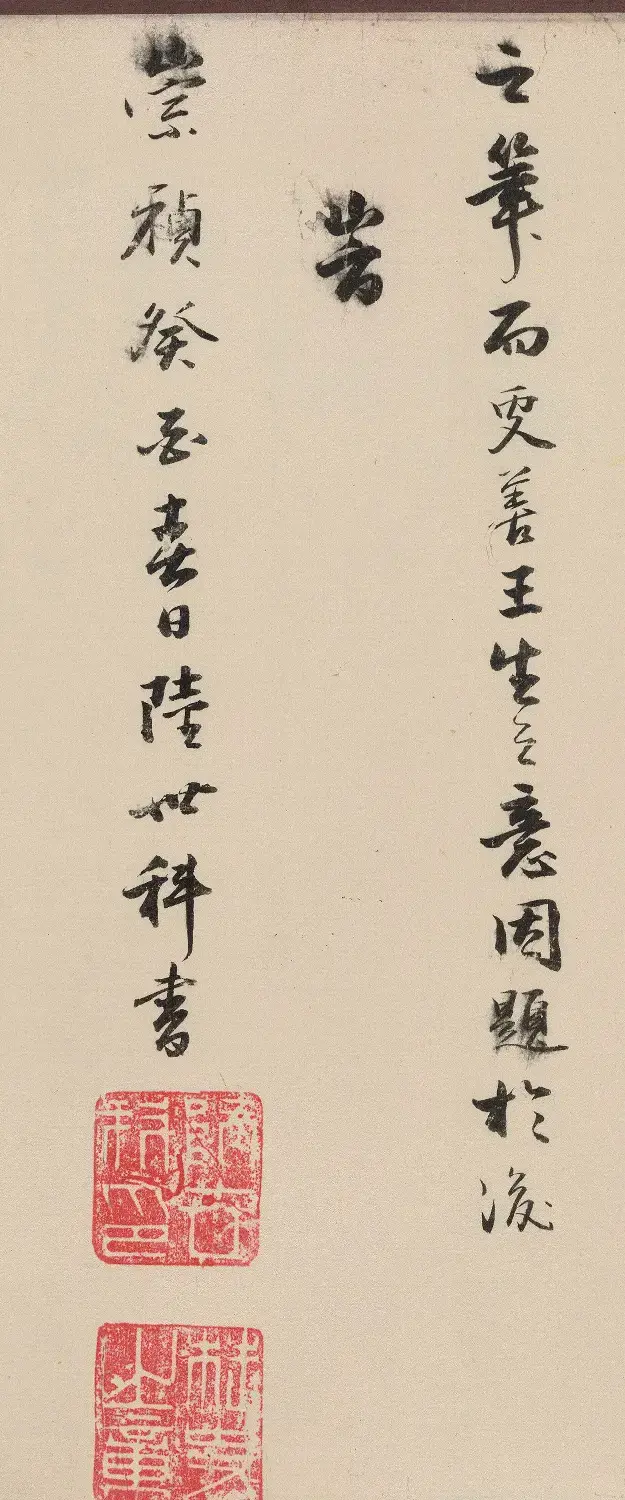 之筆而更善王生之意因題於後
旹
崇禎癸酉春日陸世科書
陸世科印